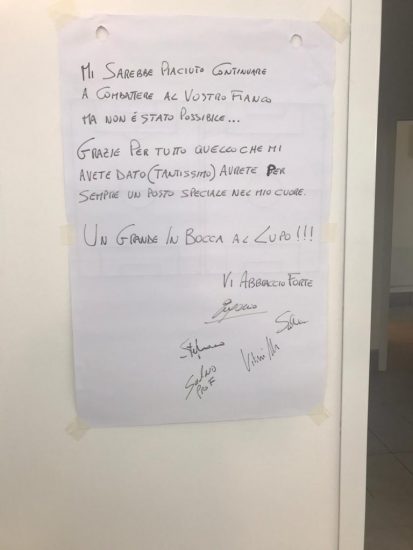 MI SAREBBE PIACIUTO CONTINUARE
A COMBATTERE AL VOSTRO FIANCO
MA NON È STATO POSSIBILE...
GRAZIE PER TUTTO QUELLO CHE MI
AVETE DATO (TANTISSIMO) AVRETE PER
SEMPRE UN POSTO SPECIALE NEL MIO CUORE.
UN GRANDE IN BOCCA AL LUPO!!!
VI ABBRACCIO FORTE
Stefano
SALVO
PROF